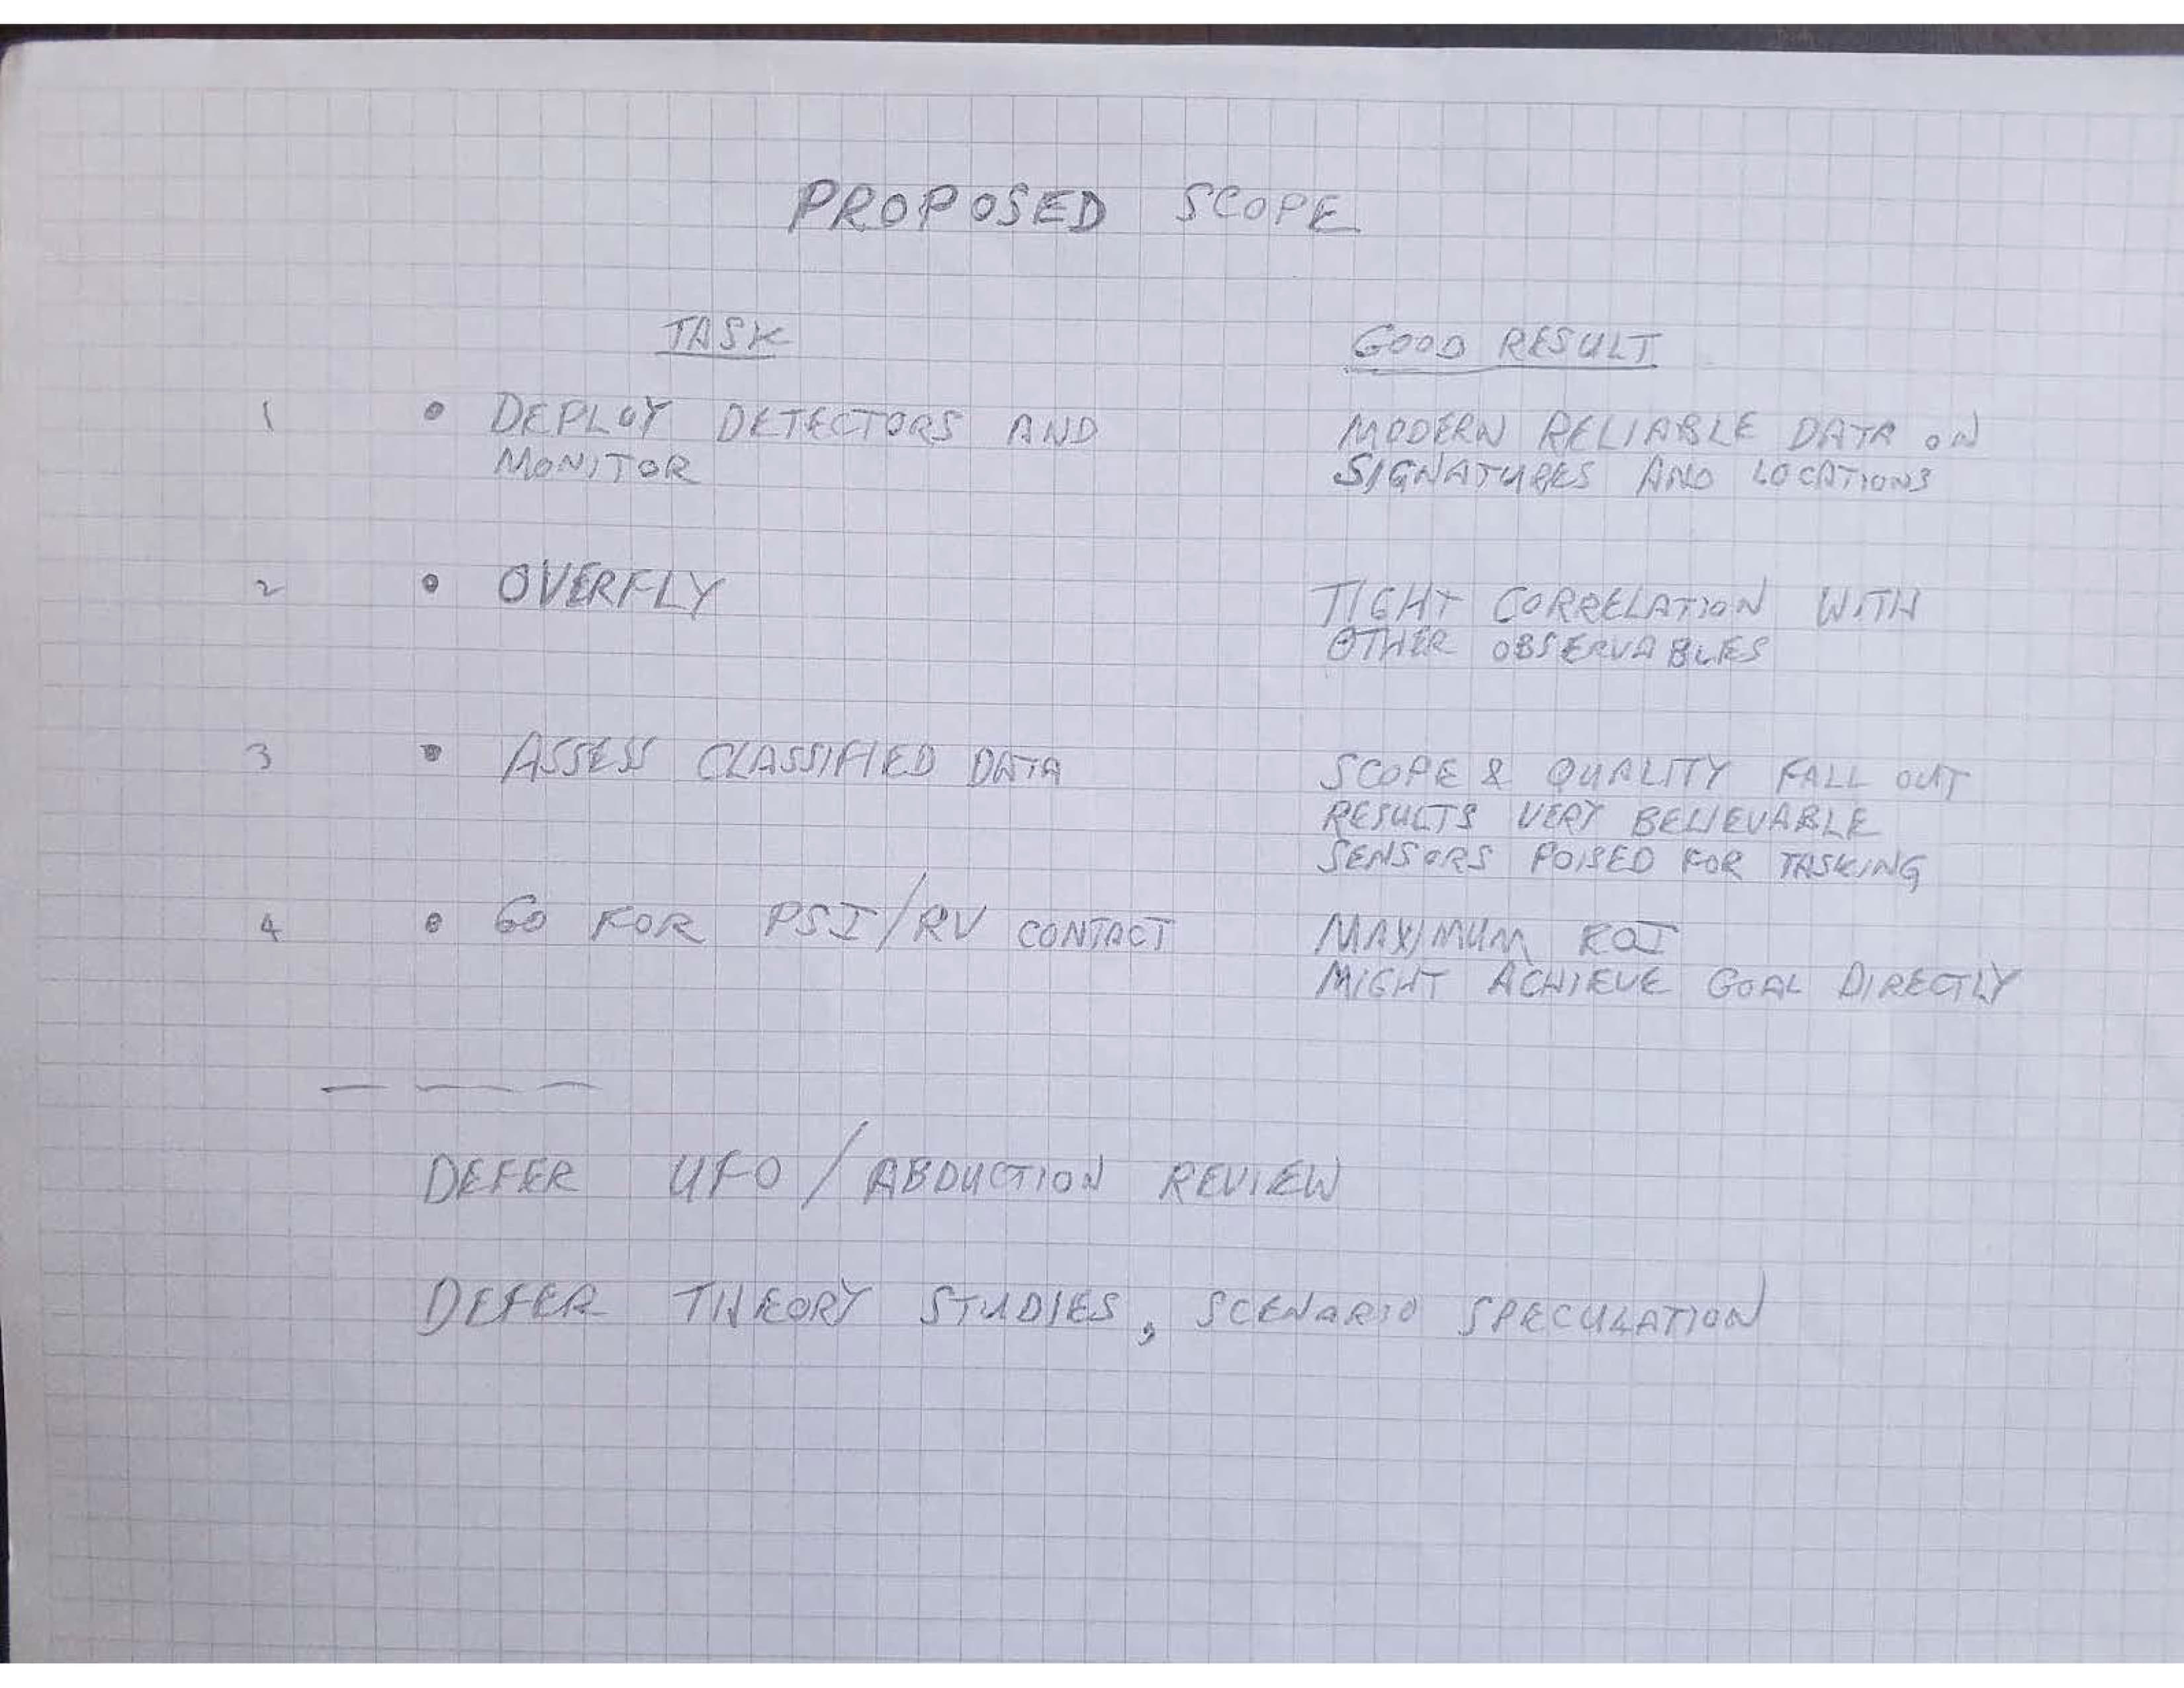 PROPOSED SCOPE
TASK GOOD RESULT
1 • DEPLOY DETECTORS AND MODERN RELIABLE DATA ON
MONITOR SIGNATURES AND LOCATIONS
2 • OVERFLY TIGHT CORRELATION WITH
OTHER OBSERVABLES
3 • ASSESS CLASSIFIED DATA SCOPE & QUALITY FALL OUT
RESULTS VERY BELIEVABLE
SENSORS POISED FOR TASKING
4 • GO FOR PSI/RV CONTACT MAXIMUM ROI
MIGHT ACHIEVE GOAL DIRECTLY
— — —
DEFER UFO / ABDUCTION REVIEW
DEFER THEORY STUDIES, SCENARIO SPECULATION